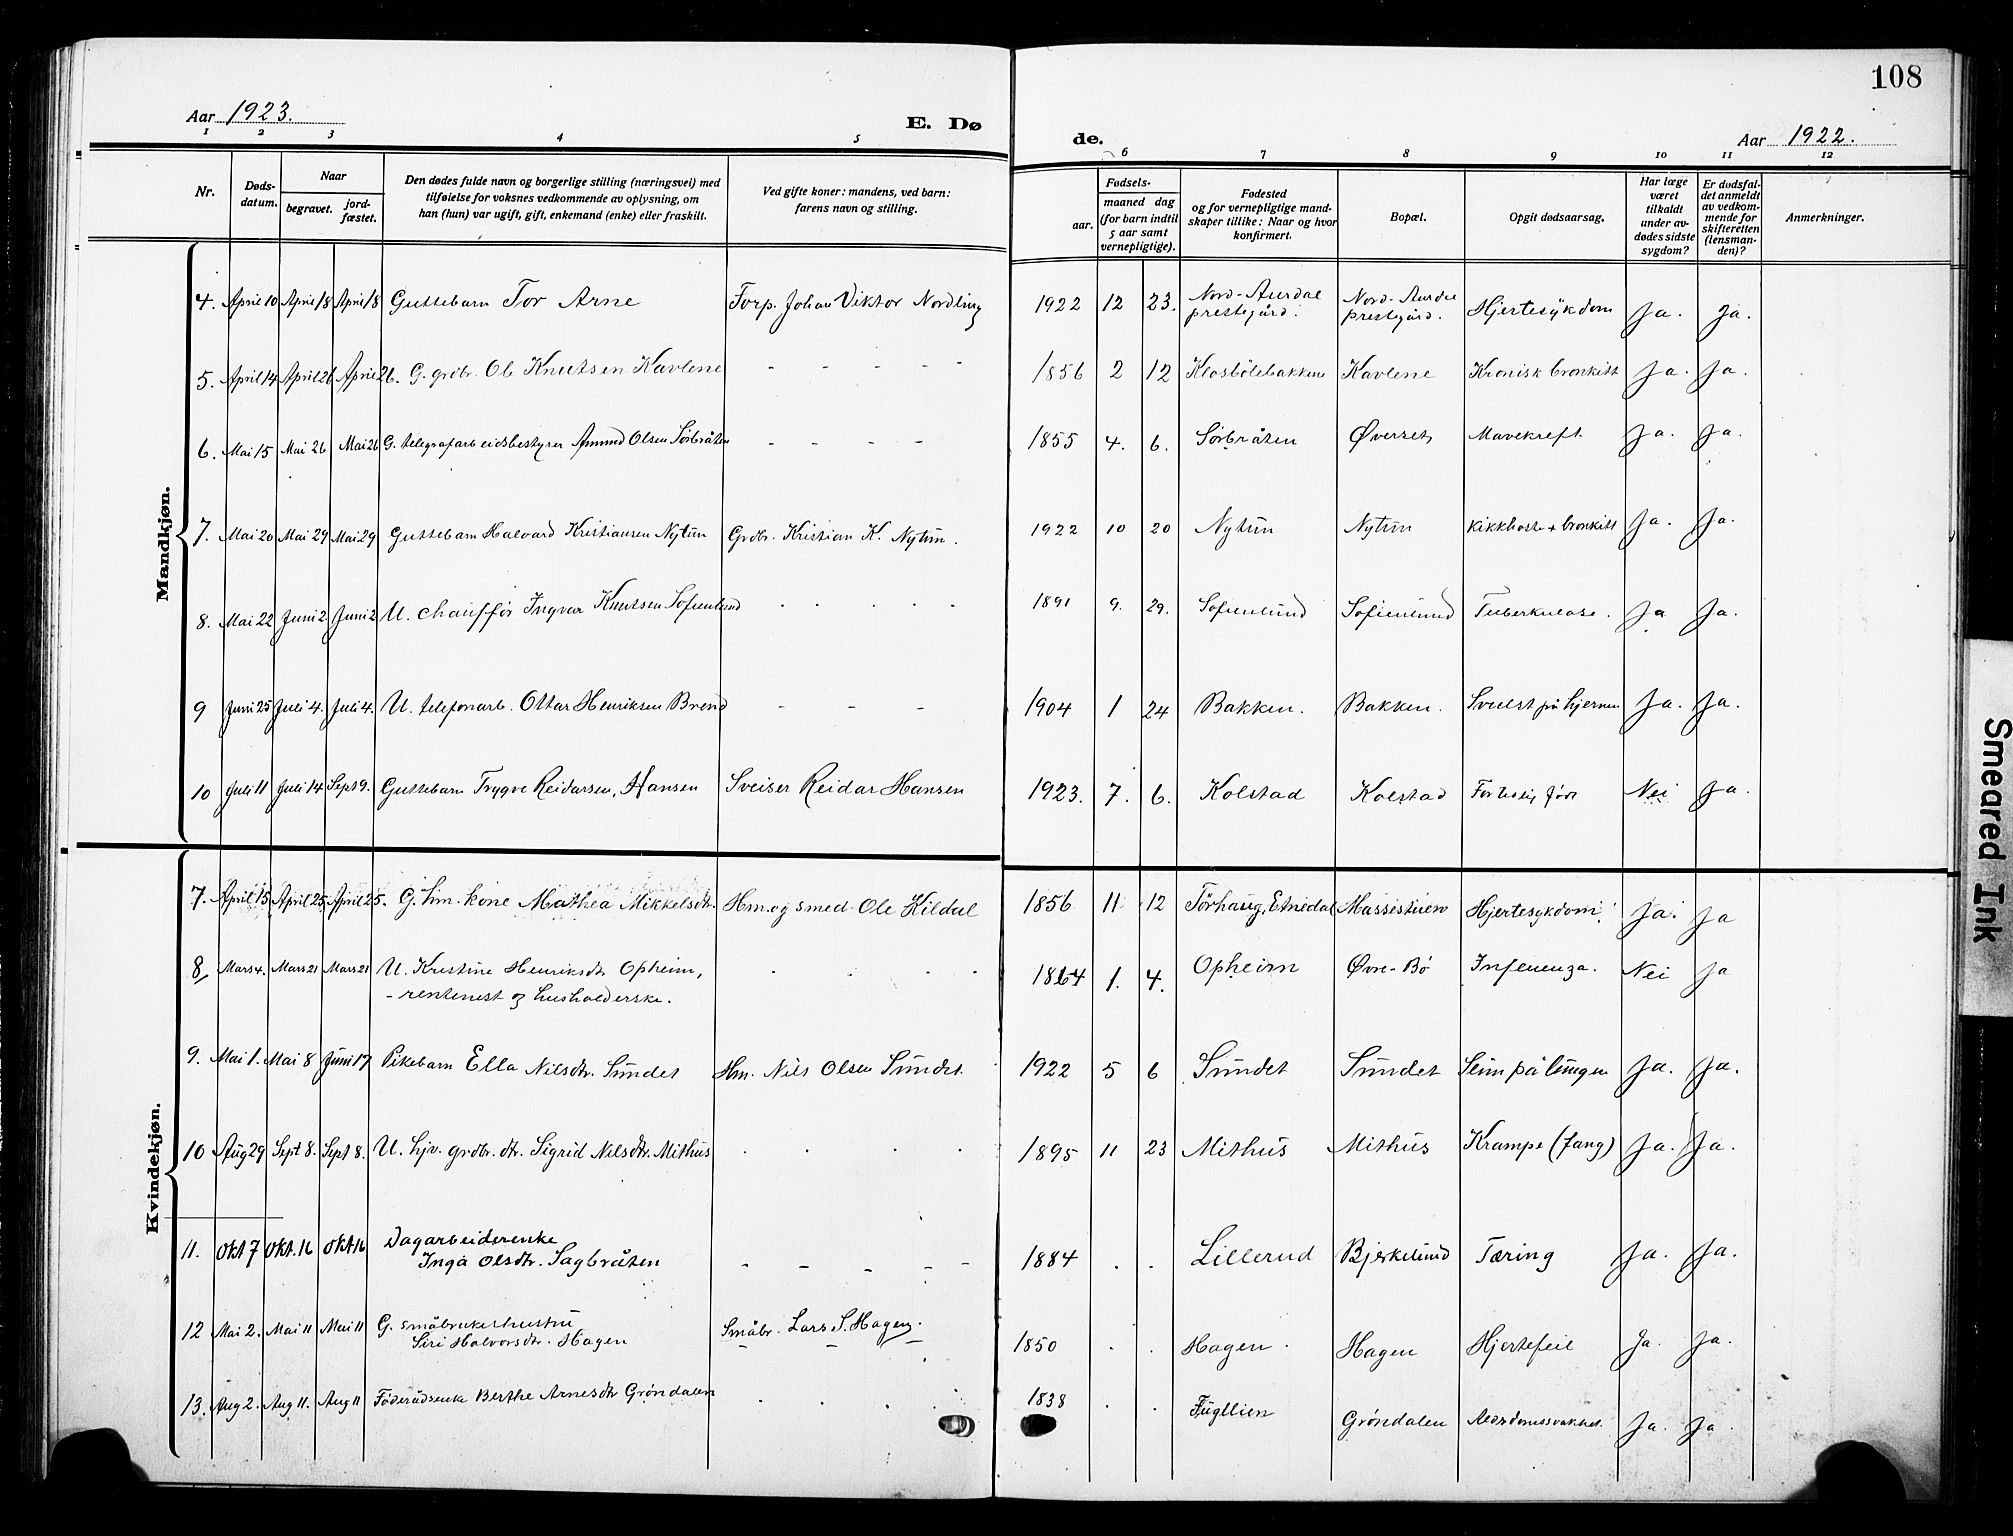 108
Aar 1923.
E. Dø
de.
Aar 1922.
1 2 3 4 5 6 7 8 9 10 11 12
Nr.
Døds-
datum.
Naar
begravet.
jord-
fæstet.
Den dødes fulde navn og borgerlige stilling (næringsvei) med
tilføielse for voksnes vedkommende av oplysning, om
han (hun) var ugift, gift, enkemand (enke) eller fraskilt.
Ved gifte koner: mandens, ved barn:
farens navn og stilling.
Fødsels-
aar.
maaned dag
(for barn indtil
5 aar samt
vernepligtige).
Fødested
og for vernepligtige mand-
skaper tillike: Naar og hvor
konfirmert.
Bopæl.
Opgit dødsaarsag.
Har læge
været
tilkaldt
under av-
dødes sidste
sygdom?
Er dødsfal-
det anmeldt
av vedkom-
mende for
skifteretten
(lensman-
den)?
Anmerkninger.
Mandkjøn.
4. April 10 April 18 April 18 Guttebarn Tor Arne Forp. Johan Viktor Nordling 1922 12 23. Nord-Aurdal prestegård. Nord-Aurdal prestegård. Hjertesykdom Ja. Ja.
5. April 14 April 26 April 26. G. grdbr. Ole Knutsen Kavlene - - - - 1856 2 12 Klosbølebakken Kavlene Kronisk bronkitt Ja. Ja.
6. Mai 15 Mai 26 Mai 26 G. telegrafarbeidsbestyrer Amund Olsen Sørbråten - - - - 1855 4. 6. Sørbråten Øverset Mavekreft Ja. Ja.
7. Mai 20 Mai 29 Mai 29 Guttebarn Halvard Kristiansen Nytun Grdbr. Kristian K. Nytun. 1922 10 20 Nytun Nytun Kikkhoste + bronkitt Ja. Ja.
8. Mai 22 Juni 2 Juni 2 U. chauffør Ingvar Knutsen Sofienlund 1891 9. 29. Sofienlund Sofienlund Tuberkulose. Ja Ja.
9 Juni 25 Juli 4. Juli 4. U. telefonarb. Ottar Henriksen Brend - - - 1904 1 24 Bakken. Bakken. Svulst på hjernen Ja. Ja.
10 Juli 11 Juli 14 Sept 9. Guttebarn Trygve Reidarsen, Hansen Sveiser Reidar Hansen 1923. 7. 6. Kolstad Kolstad For tidlig født Nei Ja.
Kvindekjøn.
7. April 15 April 25 April 25. G. hm. kone Mathea Mikkelsdtr. Hm. og smed Ole Kildal 1856 11 12 Tørhaug, Etnedal Massistuen Hjertesykdom Ja. Ja
8, Mars 4. Mars 21 Mars 21 U. Kristine Henriksdtr Opheim,
- rentenist og husholderske. 1864 1. 4. Opheim Øvre-Bø Infenenza. Nei Ja
9. Mai 1. Mai 8 Juni 17 Pikebarn Ella Nilsdtr. Sundet Hm. Nils Olsen Sundet. 1922 5 6 Sundet Sundet Slim på lungen Ja. Ja.
10 Aug 29 Sept 8. Sept 8. U. hjv. grdbr. dtr. Sigrid Nilsdtr. Mithus 1895 11 23 Mithus Mithus Krampe (fang) Ja. Ja.
11. Okt 7 Okt. 16 Okt 16 Dagarbeiderenke
Inga Olsdtr. Sagbråten - - - - - 1884 . . Lillerud Bjerkelund Tæring Ja. Ja.
12 Mai 2. Mai 11 Mai 11 G. småbrukerhustru
Siri Halvorsdtr. Hagen Småbr. Lars S. Hagen. 1850 . . Hagen. Hagen Hjertefeil Ja. Ja.
13. Aug 2. Aug 11. Aug 11 Føderådsenke Berthe Arnesdtr Grøndalen 1838 . . Fugllien Grøndalen Alderdomssvakhet. Ja. Ja.
Smeared Ink